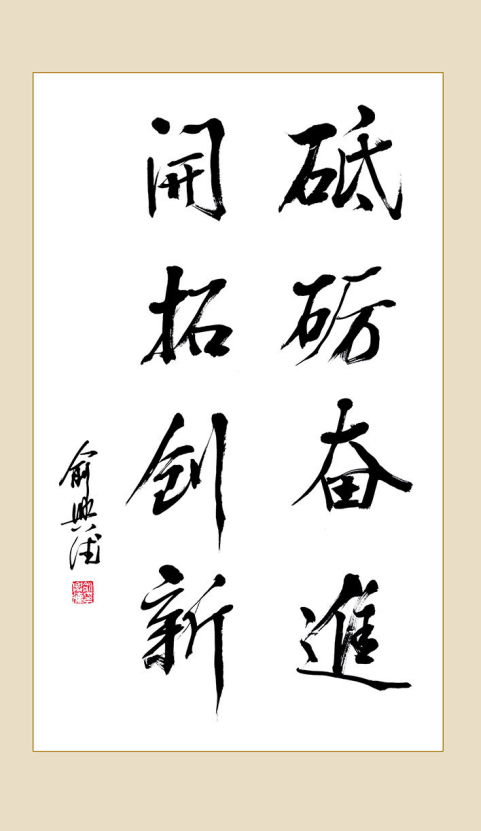 砥砺奋進
開拓创新
俞興